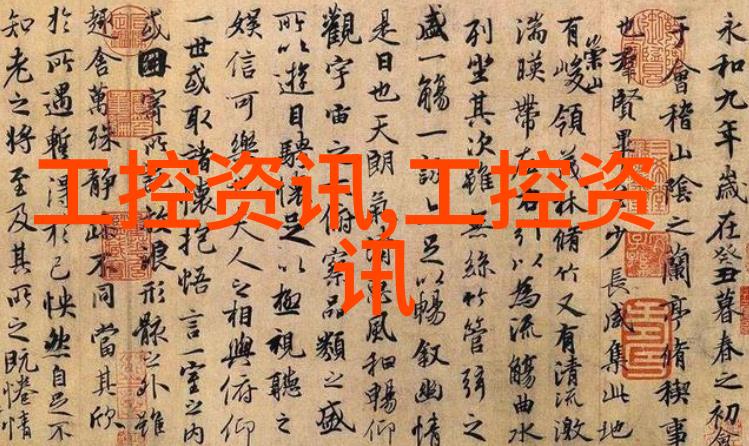 工控资讯,工控资
讯
永和九年歲在癸丑暮春之初會
于會稽山陰之蘭亭脩稧事
也羣賢畢少長咸集此地
有崇山峻領茂林脩竹又有清流激
湍暎帶左右引以為流觴曲水
列坐其次雖無絲竹管弦之
盛一觴一詠足以暢叙幽情
是日也天朗氣清惠風和暢仰
觀宇宙之俯察品類之盛
所以遊目騁懷足以極視聽之
娛信可樂也夫人之相與俯仰
一世或取諸懷抱悟言一室之內
或因寄所放浪形骸之外雖
趣舍萬殊靜不同當其欣
於所遇暫得於己怏然自足不
知老之將至及其所之既惓情